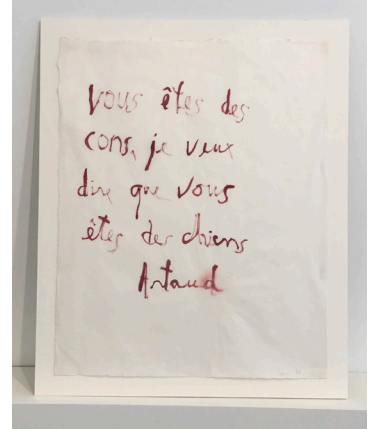 vous êtes des
cons, je veux
dire que vous
êtes des chiens
Artaud